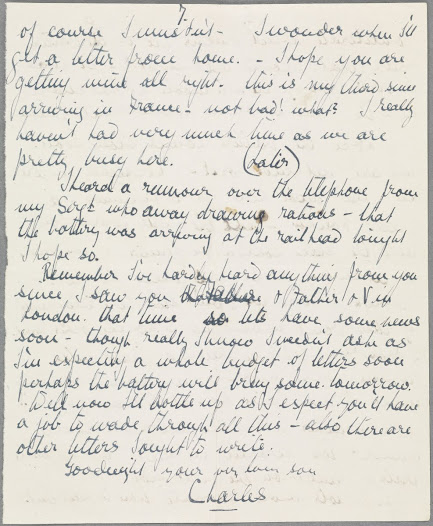 7.
of course I mustn't - I wonder when I'll
get a letter from home. - I hope you are
getting mine all right. This is my third since
arriving in France - not bad! what? I really
haven't had very much time as we are
pretty busy here. (Later)
I heard a rumour over the telephone from
my Sergt. who away drawing rations - that
the battery was arriving at the railhead tonight
I hope so.
Remember I've hardly heard anything from you
since I saw you & Father & V. in
London that time so lets have some news
soon - though really I know I needn't ask as
I'm expecting a whole budget of letters soon
perhaps the battery will bring some tomorrow.
Well now I'll bottle up as I expect you'll have
a job to wade through all this - also there are
other letters I ought to write.
Goodnight your own son
Charles